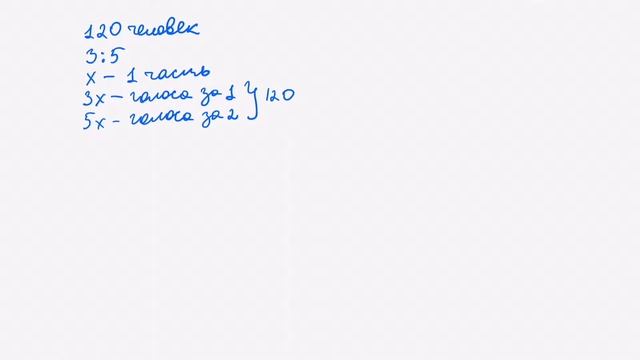 120 человек
3:5
x – 1 часть
3x – голоса за 1 } 120
5x – голоса за 2